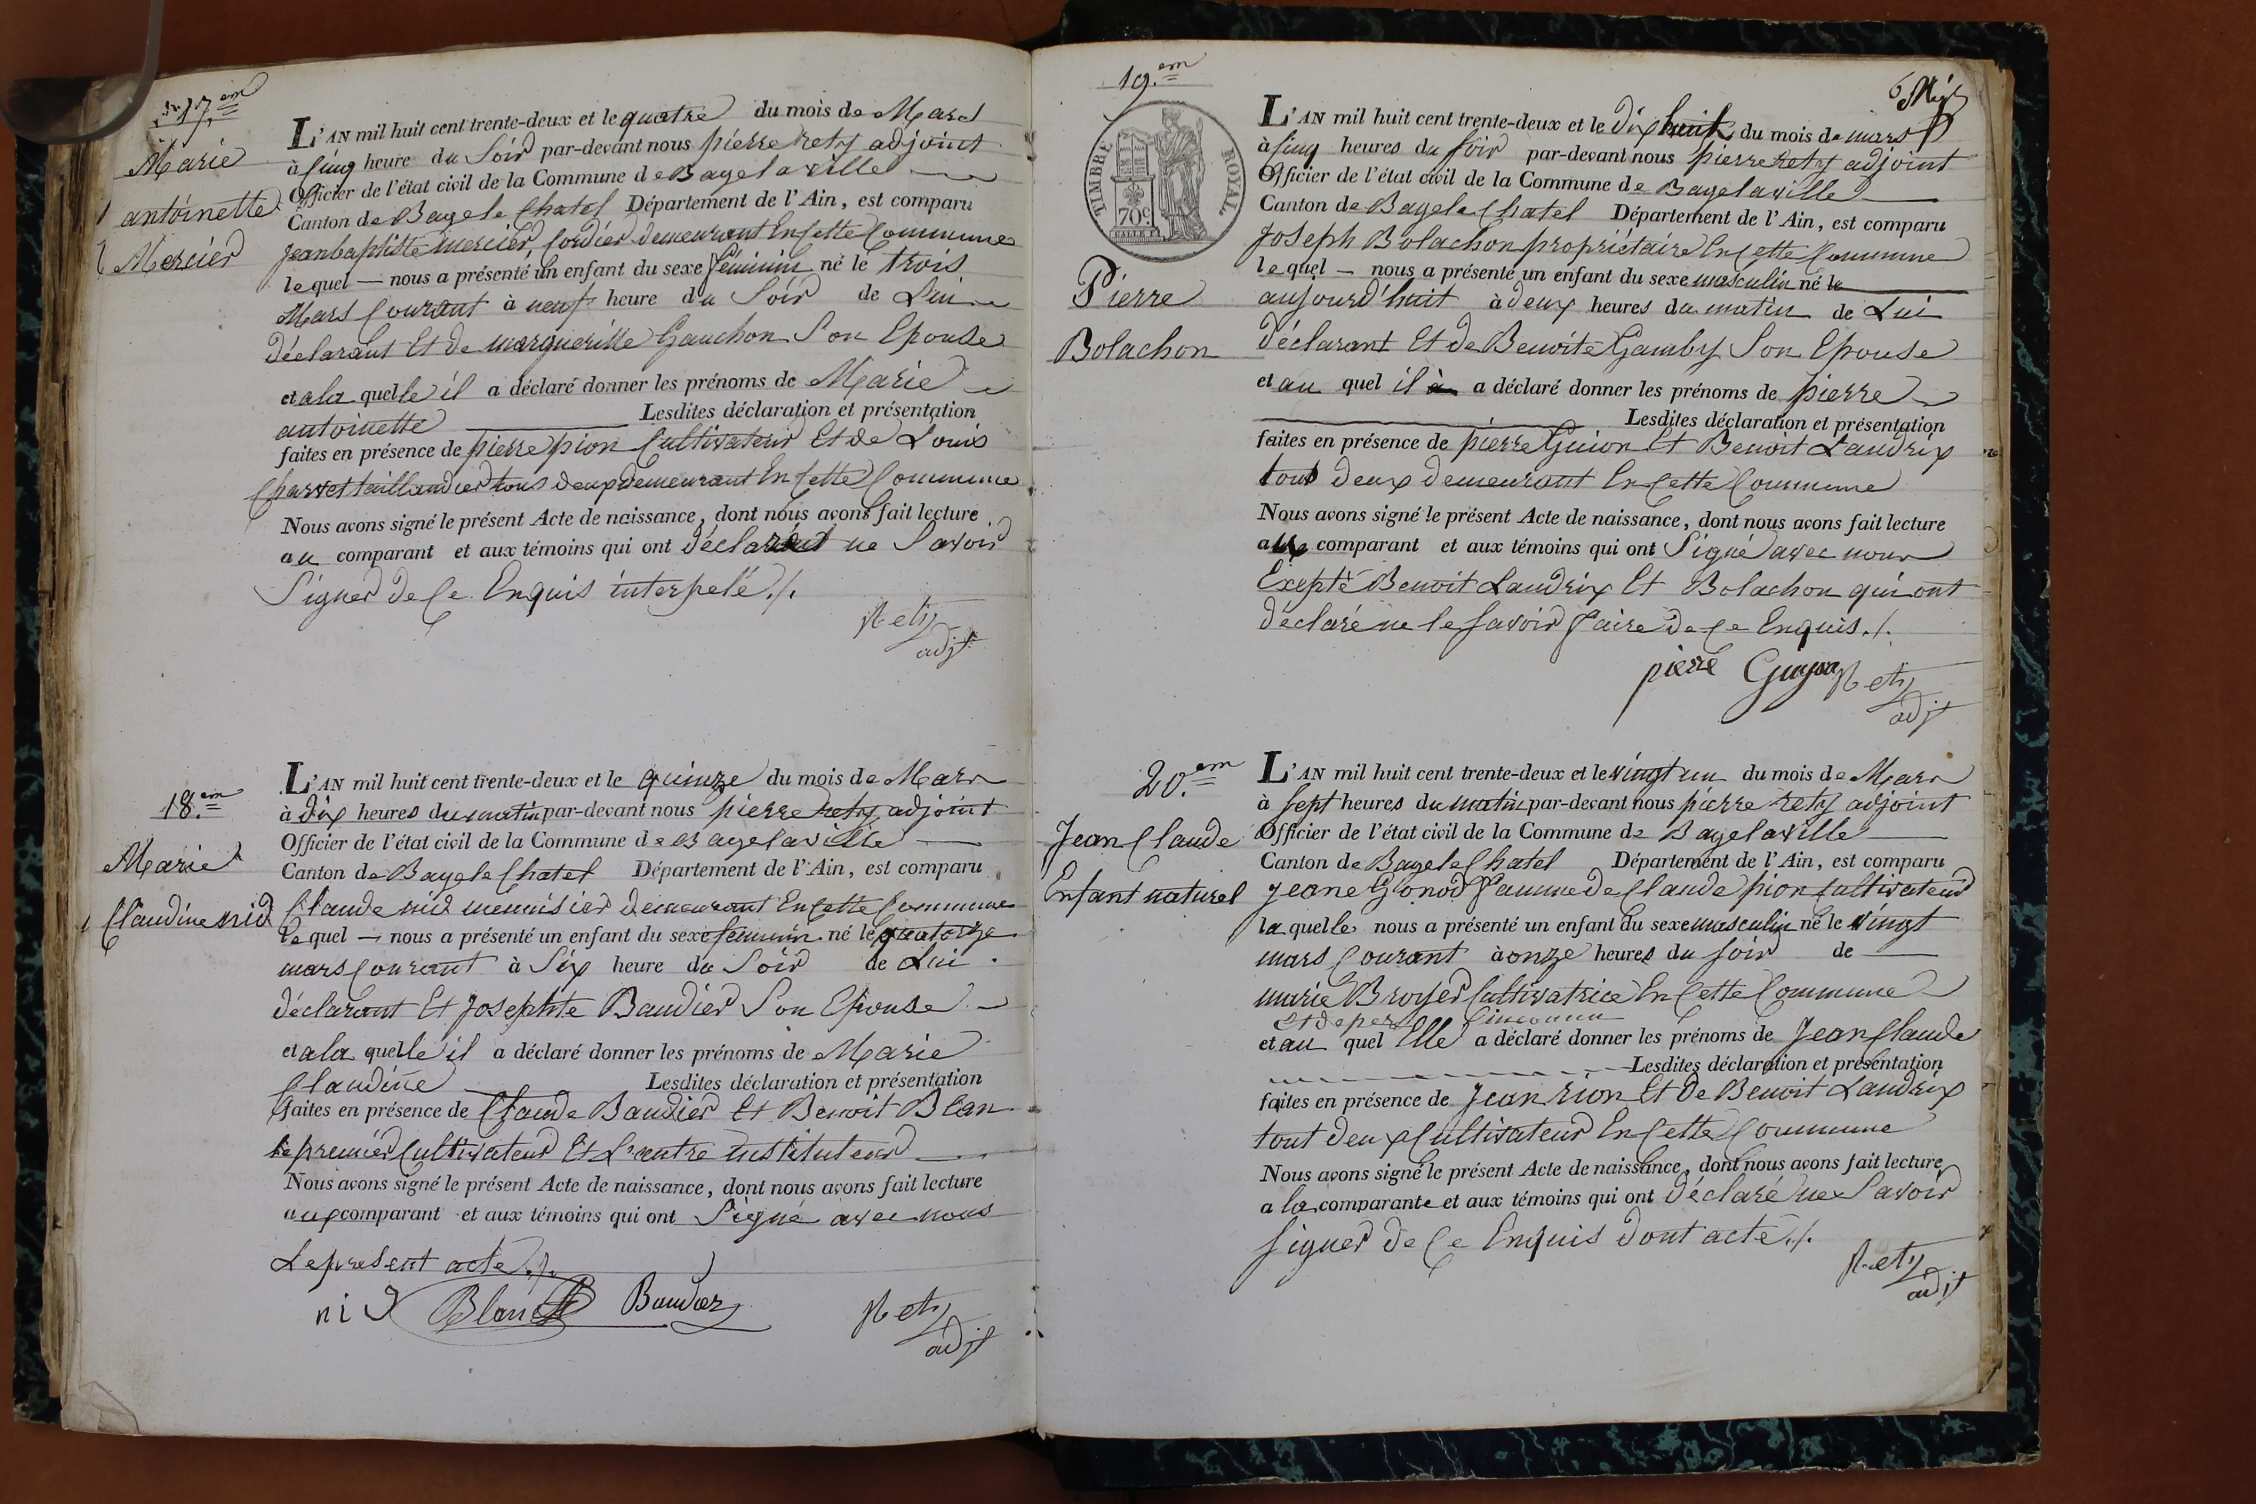 17.em
Marie
antoinette
Mercier
L'AN mil huit cent trente-deux et le quatre du mois de Mars
à Cinq heure du Soir par-devant nous pierre Rety adjoint
Officier de l'état civil de la Commune de Bagelaville
Canton de Bagele Chatel Département de l'Ain, est comparu
Jeanbaptiste mercier Cordier demeurant En Cette Commune
lequel — nous a présenté un enfant du sexe féminin né le trois
Mars Courant à neuf heure du Soir de Lui
déclarant Et de margueritte Gauchon Son Epouse
et a la quelle il a déclaré donner les prénoms de Marie
antoinette Lesdites déclaration et présentation
faites en présence de pierre pion Cultivateur Et de Louis
Charvet taillandier tous deux demeurant En Cette Commune
Nous avons signé le présent Acte de naissance, dont nous avons fait lecture
au comparant et aux témoins qui ont déclarait ne Savoir
Signer de Ce Enquis interpelé./.
Rety
adjt
18.em
Marie
Claudine nid
L'AN mil huit cent trente-deux et le quinze du mois de Mars
à dix heures du matin par-devant nous pierre Rety adjoint
Officier de l'état civil de la Commune de Bagelaville
Canton de Bagele Chatel Département de l'Ain, est comparu
Claude nid menuisier demeurant En Cette Commune
lequel — nous a présenté un enfant du sexe féminin né le quatorze
mars Courant à Six heure du Soir de Lui
déclarant Et Josephte Baudier Son Epouse
et a la quelle il a déclaré donner les prénoms de Marie
Claudine Lesdites déclaration et présentation
faites en présence de Claude Baudier Et Benoit Blan
le premier Cultivateur Et L'autre instituteur
Nous avons signé le présent Acte de naissance, dont nous avons fait lecture
aux comparant et aux témoins qui ont Signé avec nous
Le present acte./.
nid Blanc Baudier Rety
adjt
19.em
TIMBRE ROYAL
70c
Pierre
Bolachon
L'AN mil huit cent trente-deux et le dix huit du mois de mars
à Cinq heures du soir par-devant nous pierre Rety adjoint
Officier de l'état civil de la Commune de Bagelaville
Canton de Bagele Chatel Département de l'Ain, est comparu
Joseph Bolachon propriétaire En Cette Commune
lequel — nous a présenté un enfant du sexe masculin né le
aujourd'huit à deux heures du matin de Lui
déclarant Et de Benoite Gamby Son Epouse
et au quel il a a déclaré donner les prénoms de pierre
Lesdites déclaration et présentation
faites en présence de pierre Guion Et Benoit Laudrix
tout deux demeurant En Cette Commune
Nous avons signé le présent Acte de naissance, dont nous avons fait lecture
comparant et aux témoins qui ont Signé avec nous
Exepté Benoit Laudrix Et Bolachon qui ont
déclaré ne le savoir faire de Ce Enquis./.
pierre Guyon Rety
adjt
20.em
Jean Claude
Enfant naturel
L'AN mil huit cent trente-deux et le vingt un du mois de Mars
à Sept heures du matin par-devant nous pierre Rety adjoint
Officier de l'état civil de la Commune de Bagelaville
Canton de Bagele Chatel Département de l'Ain, est comparu
Jeane Gonod famme de Claude pion Cultivateur
la quelle nous a présenté un enfant du sexe masculin né le vingt
mars Courant à onze heures du soir de
marie Broyer Cultivatrice En Cette Commune
et de per inconnu
et au quel Elle a déclaré donner les prénoms de Jean Claude
Lesdites déclaration et présentation
faites en présence de Jean rion Et de Benoit Laudrix
tout deux Cultivateur En Cette Commune
Nous avons signé le présent Acte de naissance, dont nous avons fait lecture
a la comparante et aux témoins qui ont déclaré ne Savoir
signer de Ce Enquis dont acte./.
Rety
adjt